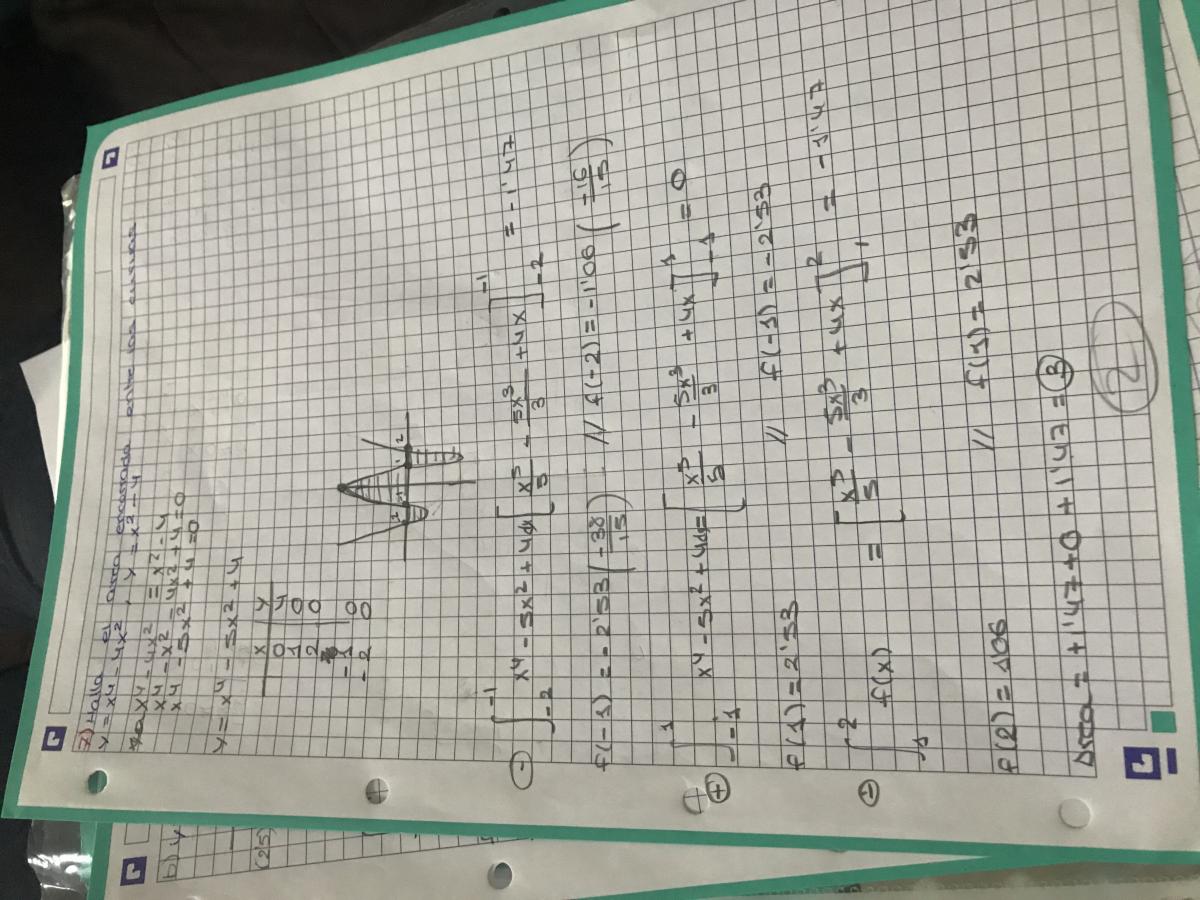 7) Halla el area encerrada entre las curvas
y = x⁴ - 4x², y = x² - 4
x⁴ - 4x² = x² - 4
x⁴ - x² - 4x² + 4 = 0
x⁴ - 5x² + 4 = 0
y = x⁴ - 5x² + 4
x y
0 4
1 0
2 0
-1 0
-2 0
-2 -1 1 2
⊖ ∫₋₂⁻¹ x⁴ - 5x² + 4dx [x⁵/5 - 5x³/3 + 4x]₋₂⁻¹ = -1'47
f(-1) = -2'53 (-38/15) // f(-2) = -1'06 (-16/15)
⊕ ∫₋₁¹ x⁴ - 5x² + 4dx = [x⁵/5 - 5x³/3 + 4x]₋₁¹ = 0
f(1) = 2'53 // f(-1) = -2'53
⊖ ∫₁² f(x) = [x⁵/5 - 5x³/3 + 4x]₁² = -1'47
f(2) = 1'06 // f(1) = 2'53
Area = +1'47 + 0 + 1'47 = 3
2
b) y
(25)